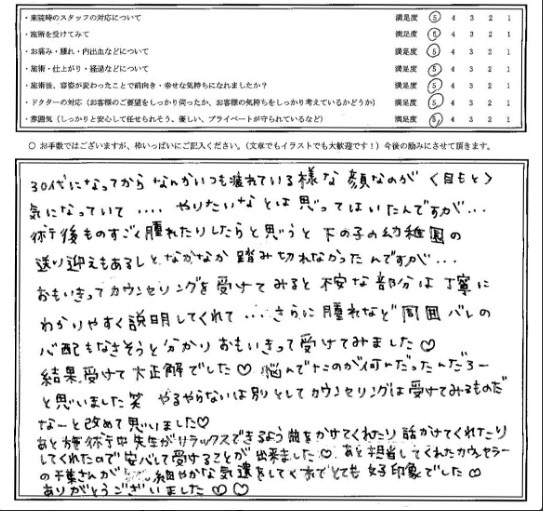 ・来院時のスタッフの対応について 満足度 5 4 3 2 1
・施術を受けてみて 満足度 5 4 3 2 1
・お痛み・腫れ・内出血などについて 満足度 5 4 3 2 1
・施術・仕上がり・経過などについて 満足度 5 4 3 2 1
・施術後、容姿が変わったことで前向き・幸せな気持ちになれましたか? 満足度 5 4 3 2 1
・ドクターの対応(お客様のご要望をしっかり伺ったか、お客様の気持ちをしっかり考えているかどうか) 満足度 5 4 3 2 1
・雰囲気(しっかりと安心して任せられそう、優しい、プライベートが守られているなど) 満足度 5 4 3 2 1
○ お手数ではございますが、枠いっぱいにご記入ください。(文章でもイラストでも大歓迎です!)今後の励みにさせて頂きます。
30代になってから なんかいつも疲れている様な 顔なのが 〈目もと〉
気になっていて .... やりたいな とは 思っては いたんですが...
術後ものすごく腫れたりしたらと思うと 下の子の幼稚園の
送り迎えもあるしと、なかなか 踏み切れなかったんですが...
おもいきってカウンセリングを受けてみると 不安な部分は 丁寧に
わかりやすく説明してくれて ... さらに 腫れなど 周囲バレの
心配もなさそうと分かり おもいきって受けてみました♡
結果、受けて 大正解でした♡ 悩んでたのが何んだったんだろー
と思いました 笑 やるやらないは別としてカウンセリングは受けてみるものだ
なーと改めて思いました♡
あと 施術中 先生がリラックスできるよう 曲をかけてくれたり 話かけてくれたり
してくれたので 安心して受けることが出来ました♡ あと 担当してくれたカウンセラー
の千葉さんが 細やかな気遣をしてくれてとても 好印象でした♡
ありがとうございました♡♡